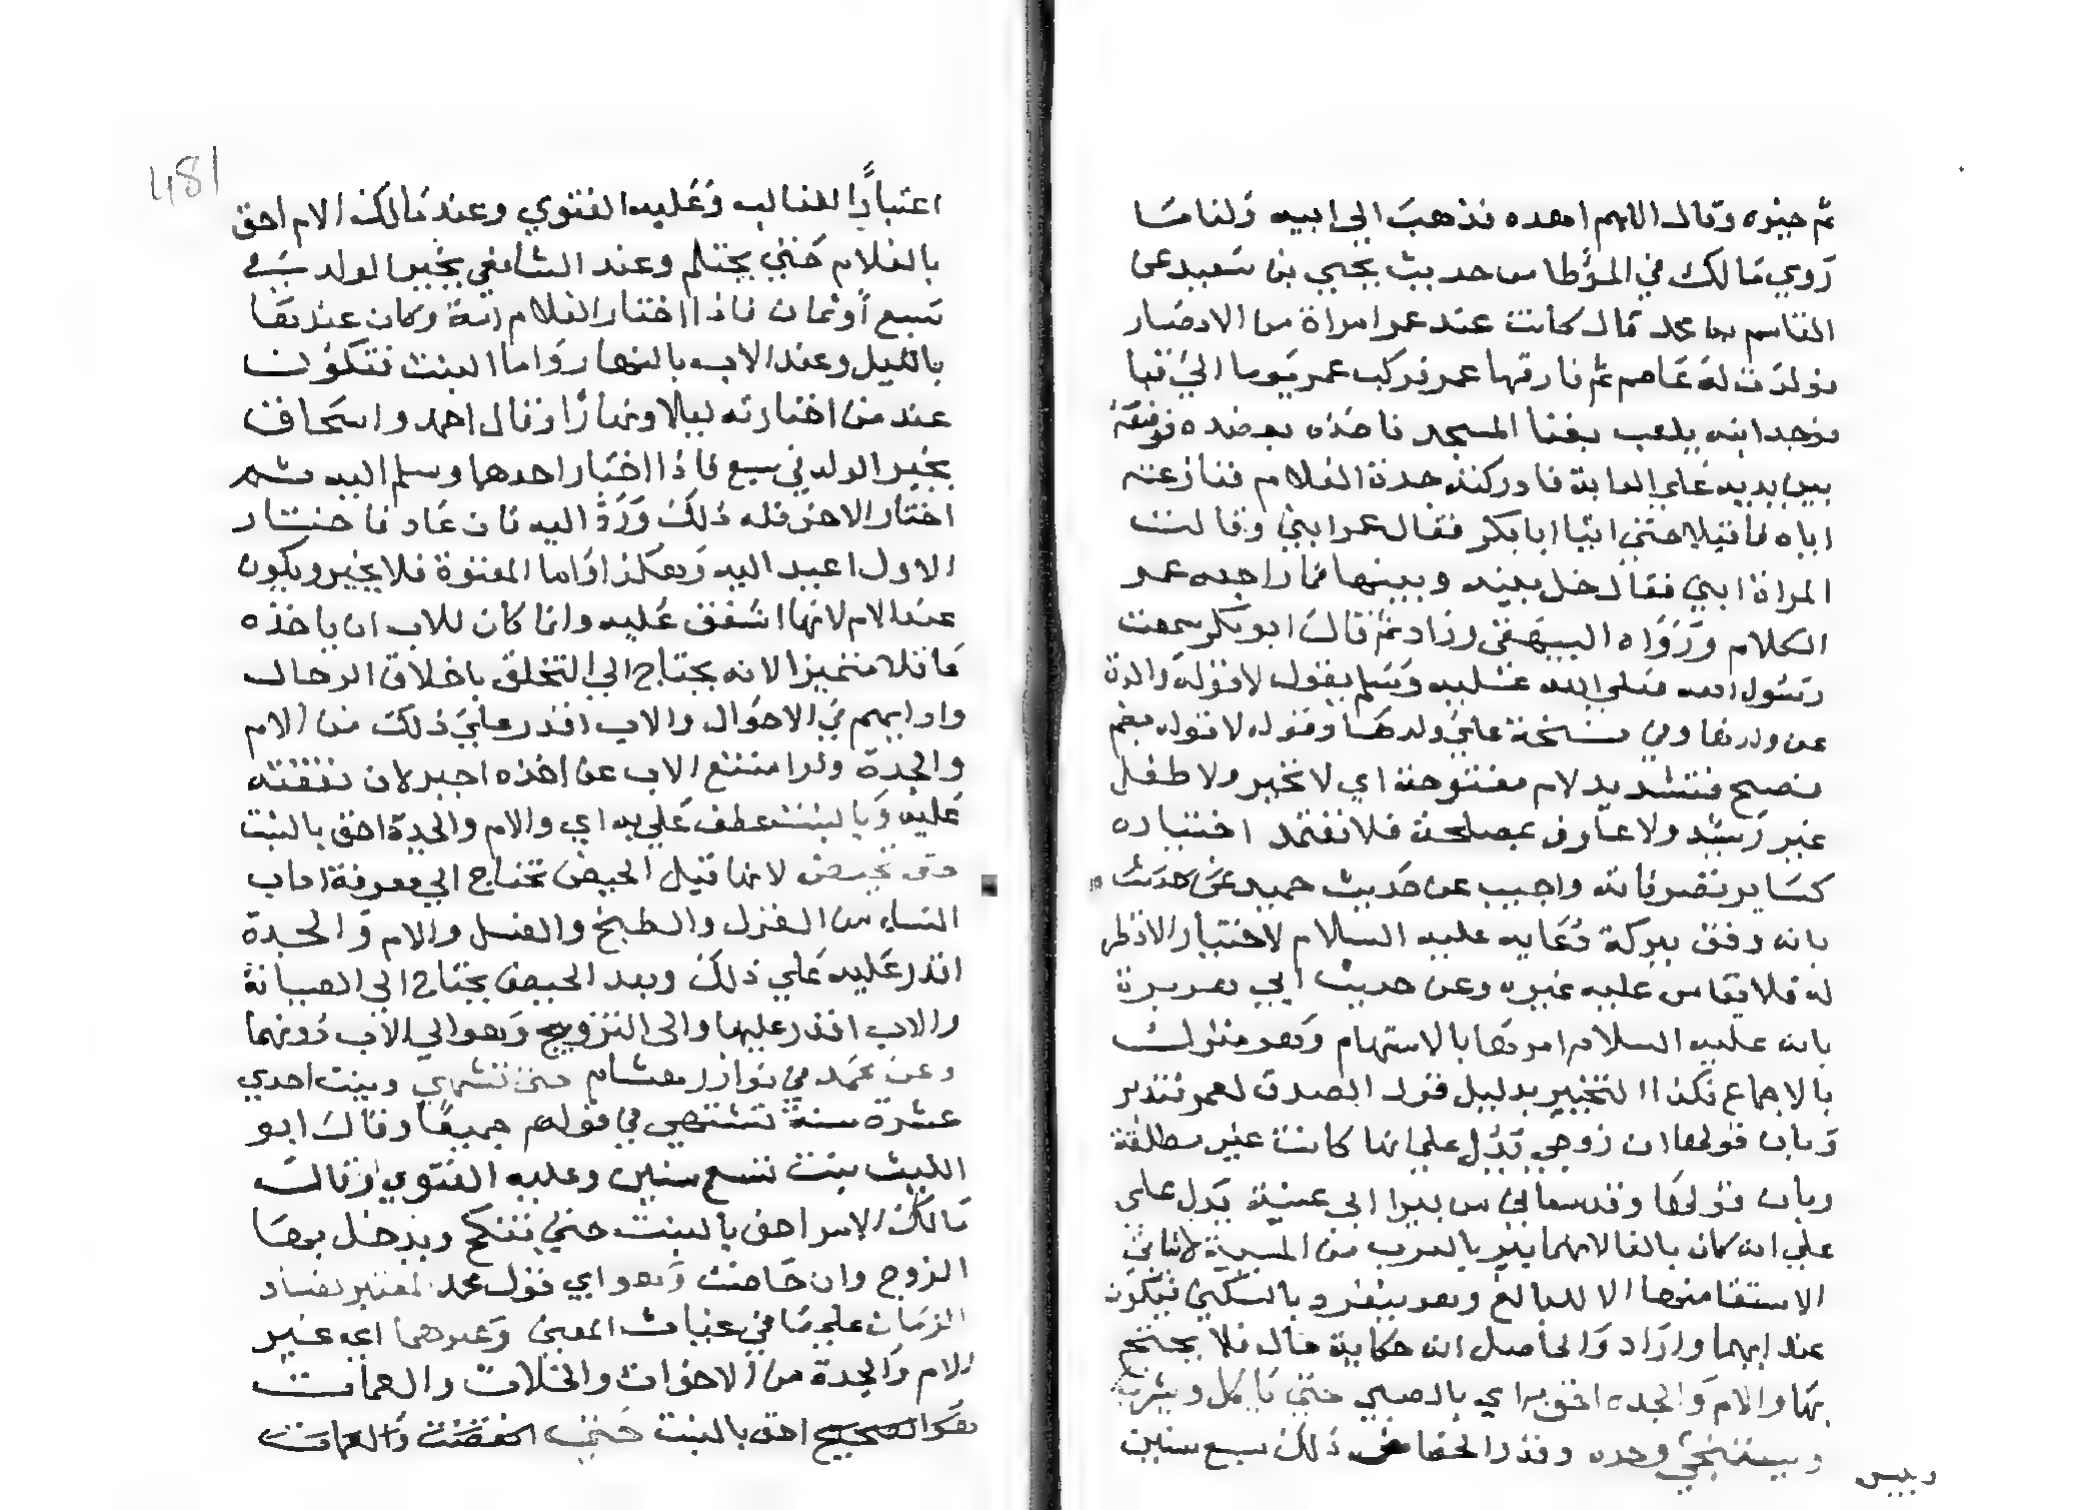 ثم خيره وقال اللهم اهده فذهب الى ابيه ولنا ما
روي مالك في الموطا من حديث يحيي بن سعيد عن
القاسم بن محمد قال كانت عند عمر امراة من الانصار
فولدت له عاصم ثم فارقها عمر فركب عمر يوما الي قبا
فوجد ابنه يلعب بفنا المسجد فاخذه بعضده فوضعه
بين يديه علي الدابة فادركته جدة الغلام فنازعته
اياه فاقبلا حتي اتيا ابا بكر فقال عمر ابني وقالت
المراة ابني فقال خل بينه وبينها فما راجعه عمر
الكلام ورواه البيهقي وزاد ثم قال ابو بكر سمعت
رسول الله صلي الله عليه وسلم يقول لا توله والدة
عن ولدها وفي نسخة علي ولدها وقوله لا توله بضم
ففتح فتشديد لام مفتوحة اي لا تخير ولا طفل
غير رشيد ولا عارف بمصلحة فلا تعتمد اختياره
كسائر تصرفاته واجيب عن حديث حميد عن حديث
بانه وفق ببركة دعايه عليه السلام لاختيار الانظر
له فلا يقاس عليه غيره وعن حديث ابي هريرة
بانه عليه السلام امرهما بالاستهام وهو متروك
بالاجماع فكذا التخيير بدليل قول الصدق لعمر فتدبر
وبان قولها ان زوجي يدل علي انها كانت غير مطلقة
وبان قولها وقد سقاني من بير ابي عنبة يدل علي
علي انه كان بالغا لانها بير بالقرب من المدينة لا يتاتي
الاستقا منها الا للبالغ وهو ينفرد بالسكني فيكون
عند ايهما واراد والحاصل انه حكاية حال فلا يحتج
بها والام والجده احق به اي بالصبي حتي ياكل ويشرب
ويستنجي وحده وقدر الخصاف ذلك سبع سنين
وبس
481
اعتبارا للغالب وعليه الفتوي وعند مالك الام احق
بالغلام حتي يحتلم وعند الشافعي يخير الولد في
سبع او ثمان فاذا اختار الغلام امه وكان عندها
بالليل وعند الاب بالنهار واما البنت فتكون
عند من اختارته ليلا ونهارا وقال احمد واسحاق
يخير الولد في سبع فاذا اختار احدهما وسلم اليه ثم
اختار الاخر فله ذلك ورد اليه فان عاد فاختار
الاول اعيد اليه وهكذا واما المعتوة فلا يخير ويكون
عند الام لانها اشفق عليه وانما كان للاب ان ياخذه
عاقلا متميزا لانه يحتاج الي التخلق باخلاق الرجال
وادابهم في الاحوال والاب اقدر علي ذلك من الام
والجدة ولو امتنع الاب عن اخذه اجبر لان نفقته
عليه وبالبنت عطف علي به اي والام والجدة احق بالبنت
حتى تحيض لانها قبل الحيض تحتاج الي معرفة اداب
النساء من الغزل والطبخ والغسل والام والجدة
اقدر عليه علي ذلك وبعد الحيض يحتاج الي الصيانة
والاب اقدر عليها والى التزويج وهو الي الاب دونهما
وعن محمد في نوادر هشام حتى تشتهي وبنت احدي
عشرة سنة تشتهي في قولهم جميعا وقال ابو
الليث بنت تسع سنين وعليه الفتوي وقال
مالك الام احق بالبنت حتي تنكح ويدخل بها
الزوج وان حاضت وهو اي قول محمد المعتبر لفساد
الزمان علي ما في غياث المفتي وغيرهما اي غير
الام والجدة من الاخوات والخالات والعمات
هو الصحيح احق بالبنت حتي